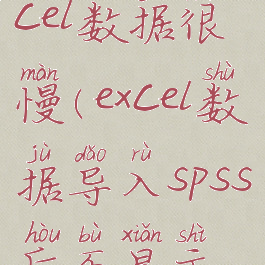 cel数据很
màn shù
慢(excel数
jù dǎo rù
据导入spss
hòu bù xiǎn shì
后不显示